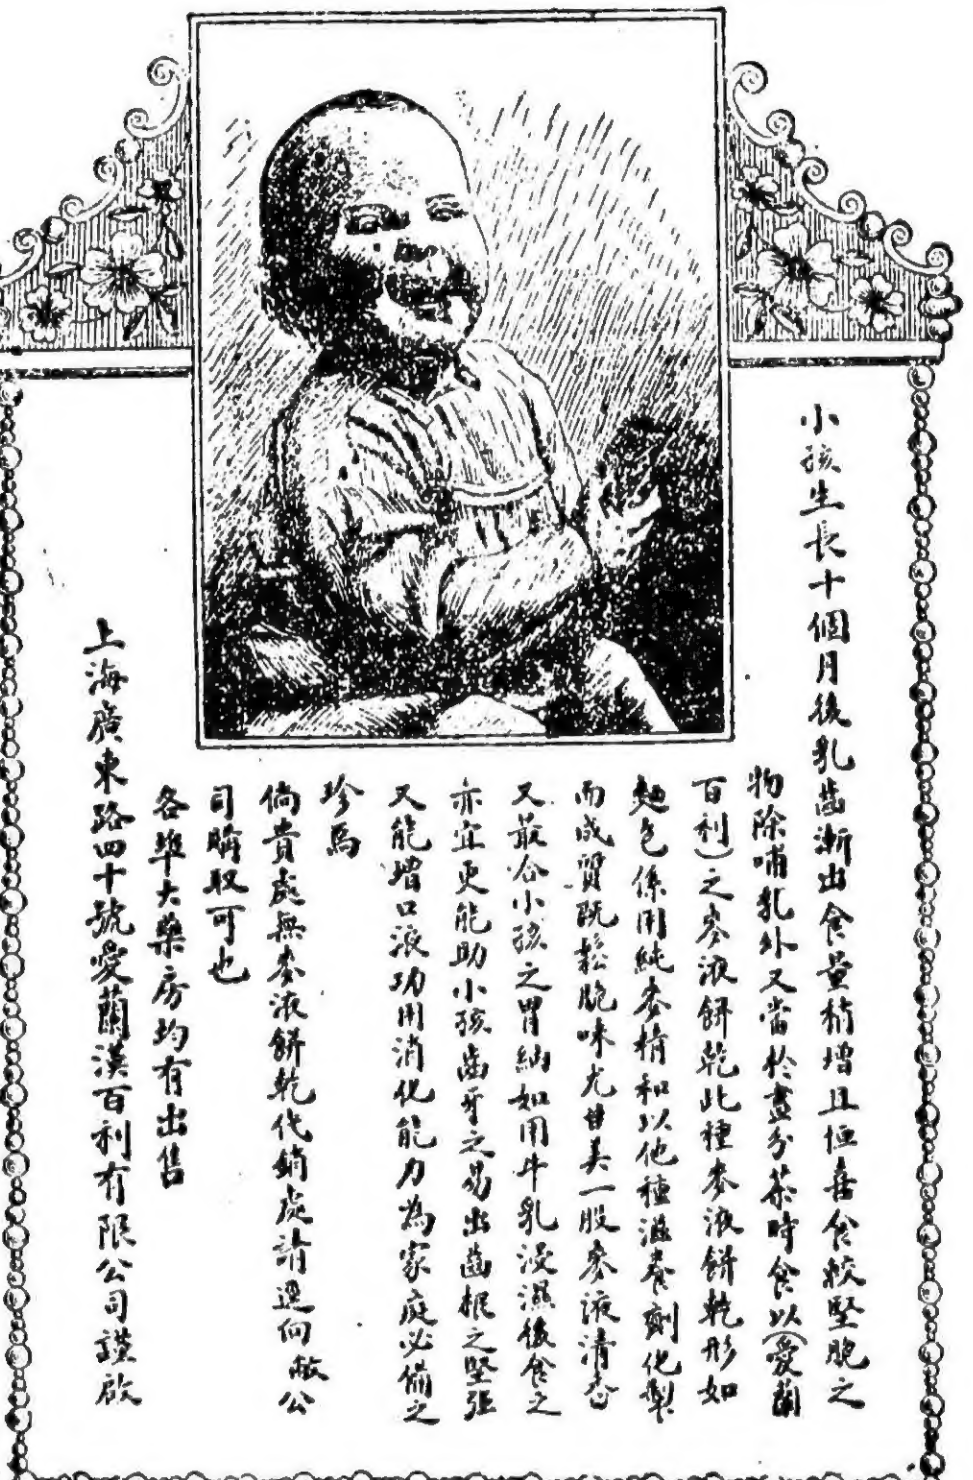 小孩生長十個月後乳齒漸出食量稍增且恒喜食較堅脆之
物除哺乳外又當於晝分茶時食以(愛蘭
百利)之麥液餅乾此種麥液餅乾形如
麵包係用純麥精和以他種滋養劑化製
而成質既鬆脆味尤甘美一股麥液清香
又最合小孩之胃納如用牛乳浸濕後食之
亦宜更能助小孩齒牙之易出齒根之堅强
又能增口液功用消化能力為家庭必備之
珍焉
倘貴處無麥液餅乾代銷處請逕向敝公
司購取可也
各埠大藥房均有出售
上海廣東路四十號愛蘭漢百利有限公司謹啟